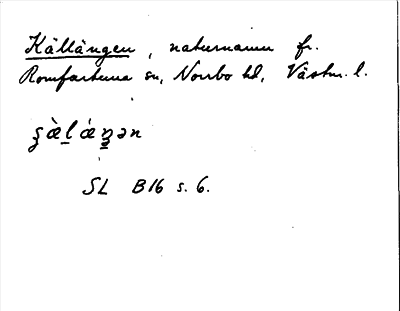 Källängen, naturnamn fr.
Romfartuna sn, Norrbo hd, Västm. l.
ʂæ̀l̠ǽŋən
SL B16 s. 6.